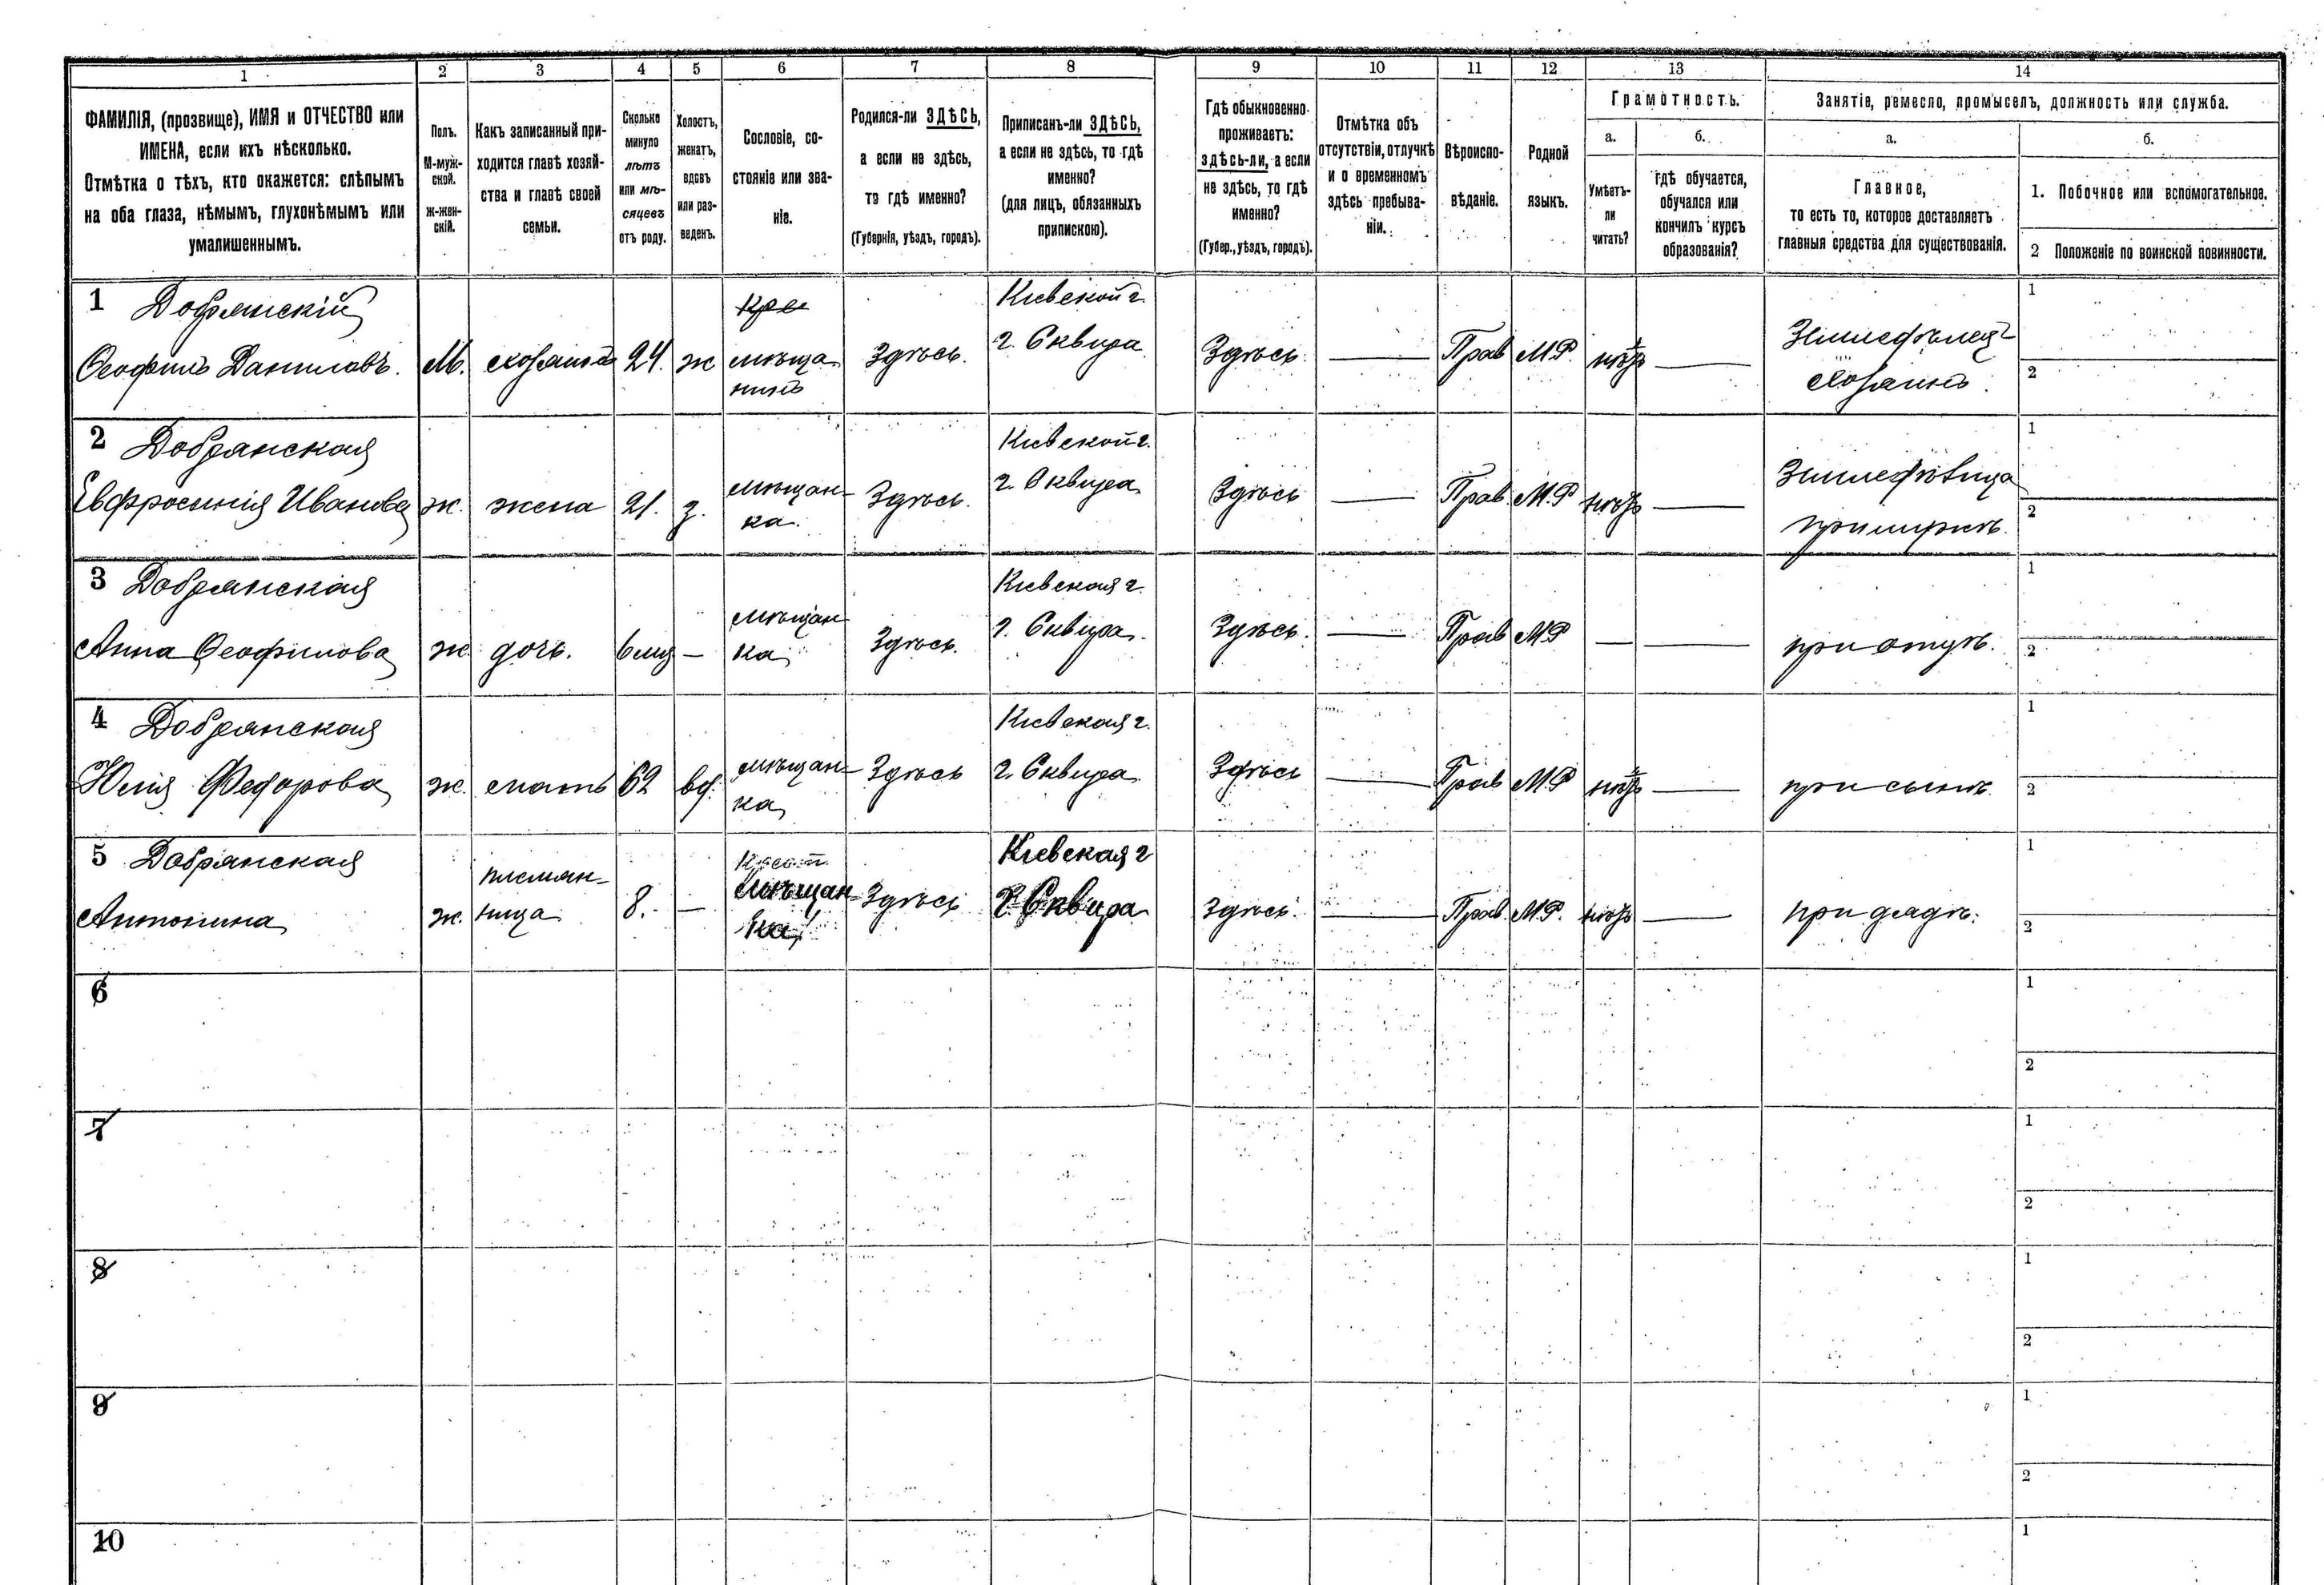 1 2 3 4 5 6 7 8 9 10 11 12 13 14
ФАМИЛІЯ, (прозвище), ИМЯ и ОТЧЕСТВО или
ИМЕНА, если ихъ нѣсколько.
Отмѣтка о тѣхъ, кто окажется: слѣпымъ
на оба глаза, нѣмымъ, глухонѣмымъ или
умалишеннымъ.
Полъ.
М-муж-
ской.
ж-жен-
скій.
Какъ записанный при-
ходится главѣ хозяй-
ства и главѣ своей
семьи.
Сколько
минуло
лѣтъ
или мѣ-
сяцевъ
отъ роду.
Холостъ,
женатъ,
вдовъ
или раз-
веденъ.
Сословіе, со-
стояніе или зва-
ніе.
Родился-ли ЗДѢСЬ,
а если не здѣсь,
то гдѣ именно?
(Губернія, уѣздъ, городъ).
Приписанъ-ли ЗДѢСЬ,
а если не здѣсь, то гдѣ
именно?
(для лицъ, обязанныхъ
припискою).
Гдѣ обыкновенно
проживаетъ:
здѣсь-ли, а если
не здѣсь, то гдѣ
именно?
(Губер., уѣздъ, городъ).
Отмѣтка объ
отсутствіи, отлучкѣ
и о временномъ
здѣсь пребыва-
ніи.
Вѣроиспо-
вѣданіе.
Родной
языкъ.
Грамотность.
а.
Умѣетъ-
ли
читать?
б.
гдѣ обучается,
обучался или
кончилъ курсъ
образованія?
Занятіе, ремесло, промыселъ, должность или служба.
а.
Главное,
то есть то, которое доставляетъ
главныя средства для существованія.
б.
1. Побочное или вспомогательное.
2 Положеніе по воинской повинности.
1 Добрянскій
Ѳеофилъ Даниловъ.
М.
хозяинъ
24.
ж
Кре
мѣща
нинъ
Здѣсь.
Кіевской г.
г. Сквира
Здѣсь.
—
Прав
М.Р.
нѣтъ
—
Землефълец
хозяинъ.
1
2
2 Добрянская
Евфросинія Иванова
ж.
жена
21.
з.
мѣщан-
ка.
Здѣсь.
Кіевской г.
г. Сквира
Здѣсь
—
Прав.
М.Р
нѣтъ
—
при мужѣ.
1
2
3 Добрянская
Анна Ѳеофилова
ж.
дочь.
6 мц
—
мѣщан
ка
Здѣсь.
Кіевская г.
г. Сквира.
Здѣсь.
—
Прав
М.Р
—
—
при отцѣ.
1
2
4 Добрянская
Юлія Федорова
ж.
мать
62
вд.
мѣщан-
ка
Здѣсь
Кіевская г.
г. Сквира
Здѣсь
—
Прав
М.Р
нѣтъ
—
при сынѣ.
1
2
5 Добрянская
Антонина
ж.
племян-
ница
8.
—
Крест.
Мѣщан-
ка
Здѣсь
Кіевская г
г. Сквира
Здѣсь.
—
Прав.
М.Р.
нѣтъ
—
при дядѣ.
1
2
6
1
2
7
1
2
8
1
2
9
1
2
10
1